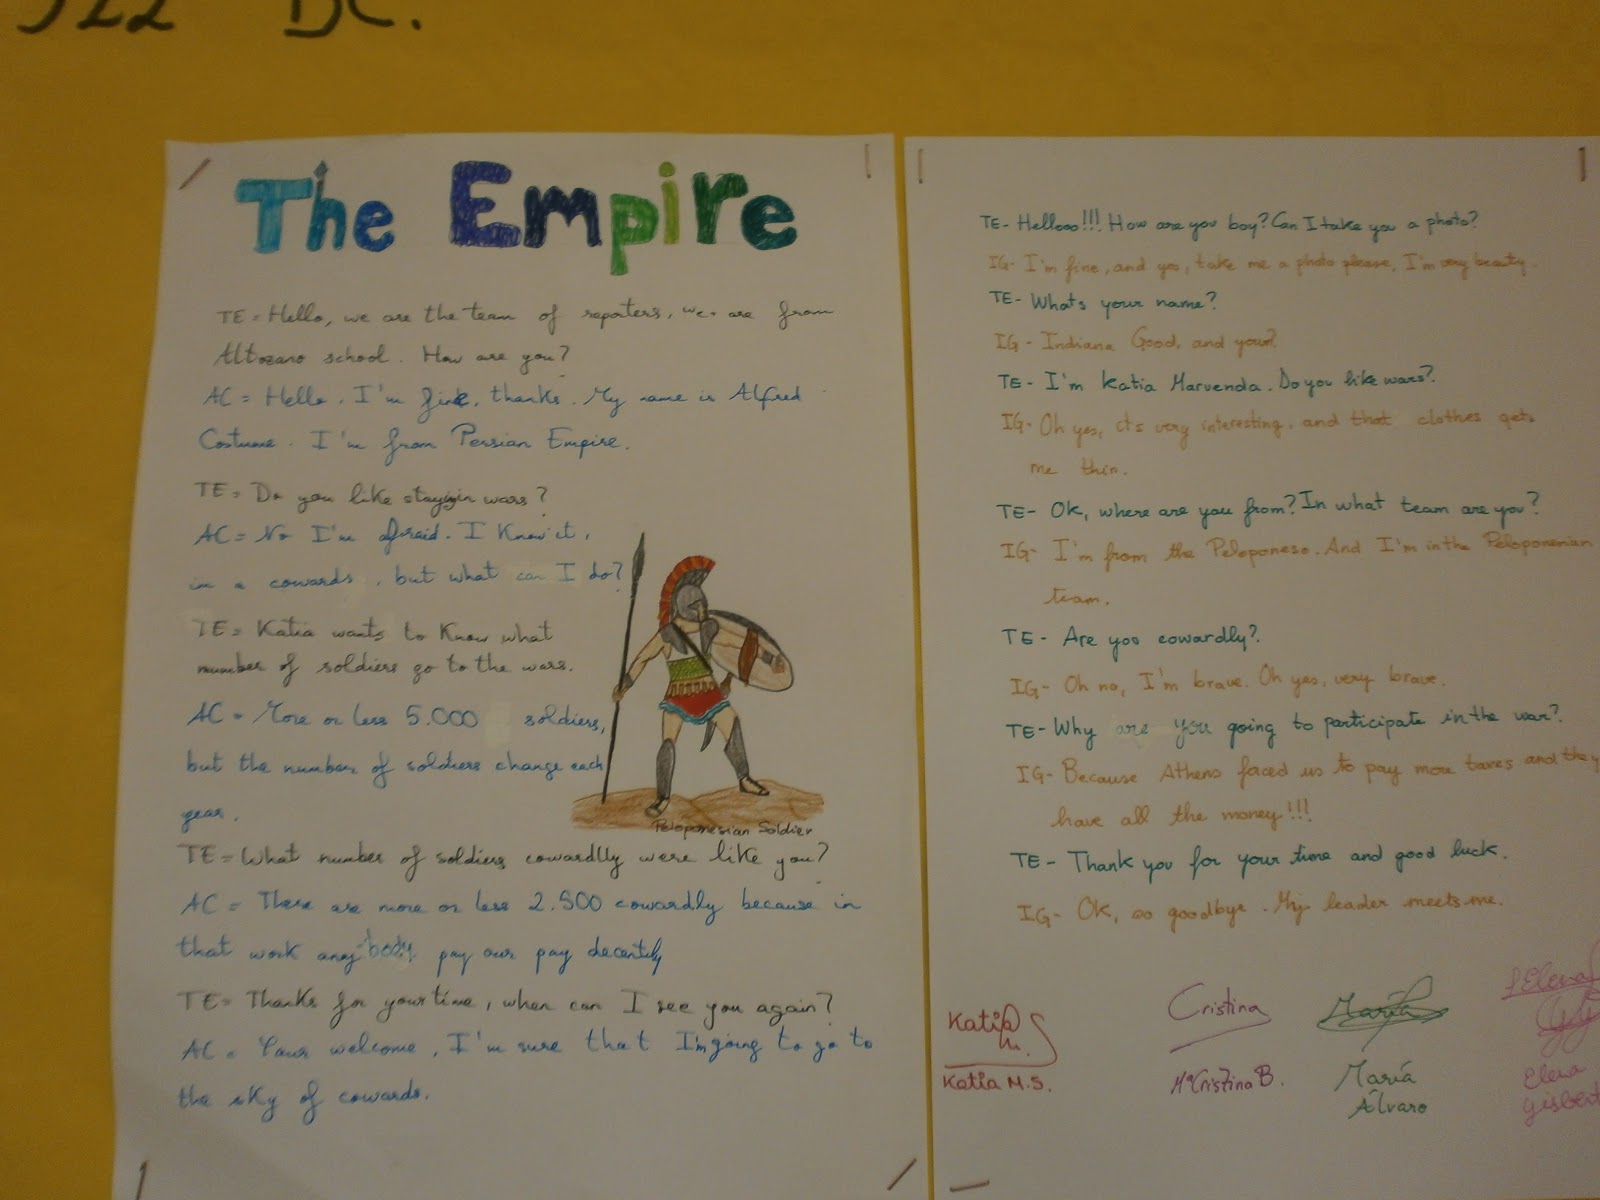 BC.
The Empire
TE= Hello, we are the team of reporters, we are from
Altozano school. How are you?
AC= Hello. I'm fine, thanks. My name is Alfred
Costume. I'm from Persian Empire.
TE= Do you like stayingin wars?
AC= No I'm afraid. I Know it,
im a cowards, but what can I do?
TE= Katia wants to Know what
number of soldiers go to the wars.
AC= More or less 5.000 soldiers,
but the number of soldiers change each
year.
Peloponesian Soldier
TE= What number of soldiers cowardlly were like you?
AC= There are more or less 2.500 cowardly because in
that work any body pay our pay decently
TE= Thanks for your time, when can I see you again?
AC= Your welcome, I'm sure that I'm going to go to
the sky of cowards.
TE- Hellooo!!! How are you boy? Can I take you a photo?
IG- I'm fine, and yes, take me a photo please, I'm very beauty.
TE- Whats your name?
IG- Indiana Good, and your?
TE- I'm Katia Marvenda. Do you like wars?
IG- Oh yes, it's very interesting, and that clothes gets
me thin.
TE- Ok, where are you from? In what team are you?
IG- I'm from the Peloponeso. And I'm in the Peloponenian
team.
TE- Are you cowardly?
IG- Oh no, I'm brave. Oh yes, very brave.
TE- Why are you going to participate in the war?
IG- Because Athens faced us to pay more taxes and they
have all the money!!!
TE- Thank you for your time and good luck.
IG- Ok, so goodbye. My leader meets me.
Katia M. S. Cristina María Elena
Katia M.S. Mª Cristina B. María Elena
Álvaro Gisbert